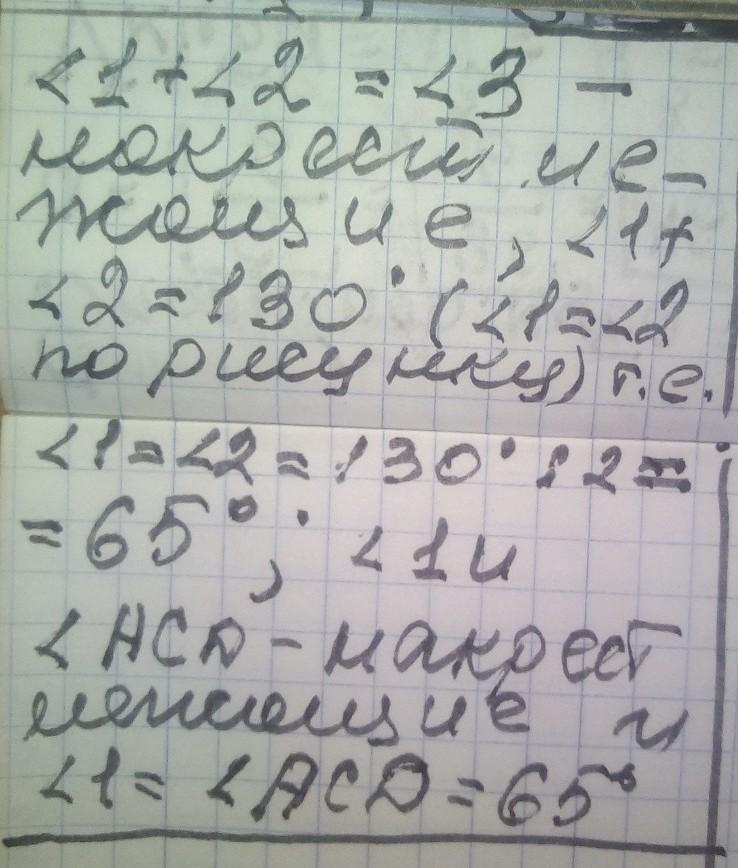 ∠1+∠2 = ∠3 –
накрест ле-
жащие, ∠1+
∠2=130° (∠1=∠2
по рисунку) т.е.
∠1=∠2=130°:2=
=65°; ∠1 и
∠ACD – накрест
лежащие и
∠1= ∠ACD=65°